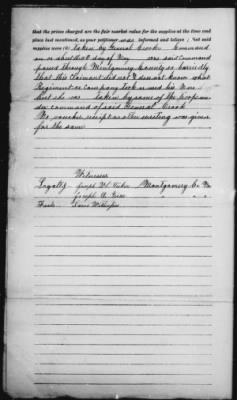 that the prices charged are the fair market value for the supplies at the time and
place last mentioned, as your petitioner was informed and believes; that said
supplies were taken by General Crooks Command
on or about that day of May was said Command
passed through Montgomery County so hurriedly
that this Claimant did not & does not know what
Regiment or Company took or used his Mare
but she was taken by some of the troops under
command of said General Crook
No voucher receipt or other writing was given
for the same
Witnesses
Loyalty Joseph
Montgomery Co Va
Joseph " "
Facts James